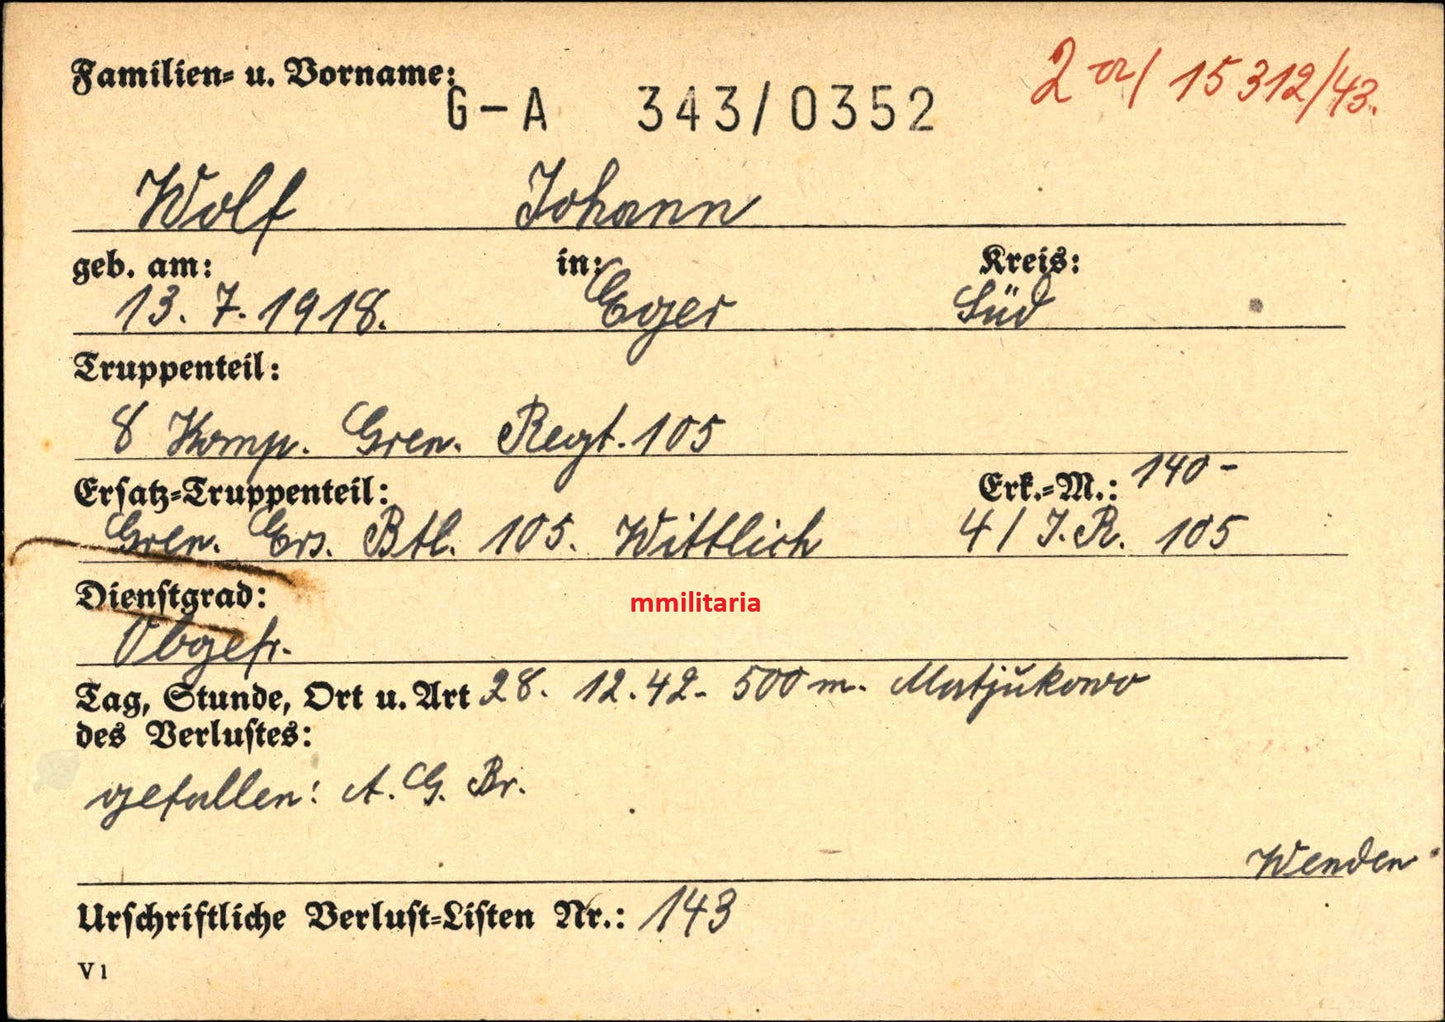 Familien- u. Vorname:
G-A 343/0352
15312/43.
Wolf Johann
geb. am: in: Kreis:
13. 7. 1918. Eger Süd
Truppenteil:
8 Komp. Gren. Regt. 105
Ersatz-Truppenteil: Erk.-M.: 140 -
Gren. Ers. Btl. 105. Wittlich 4 / J.R. 105
Dienstgrad:
mmilitaria
Obgefr.
Tag, Stunde, Ort u. Art 28. 12. 42 - 500 m. Matjukowo
des Verlustes:
gefallen: A. G. Br.
Wenden
Urschriftliche Verlust-Listen Nr.: 143
V 1